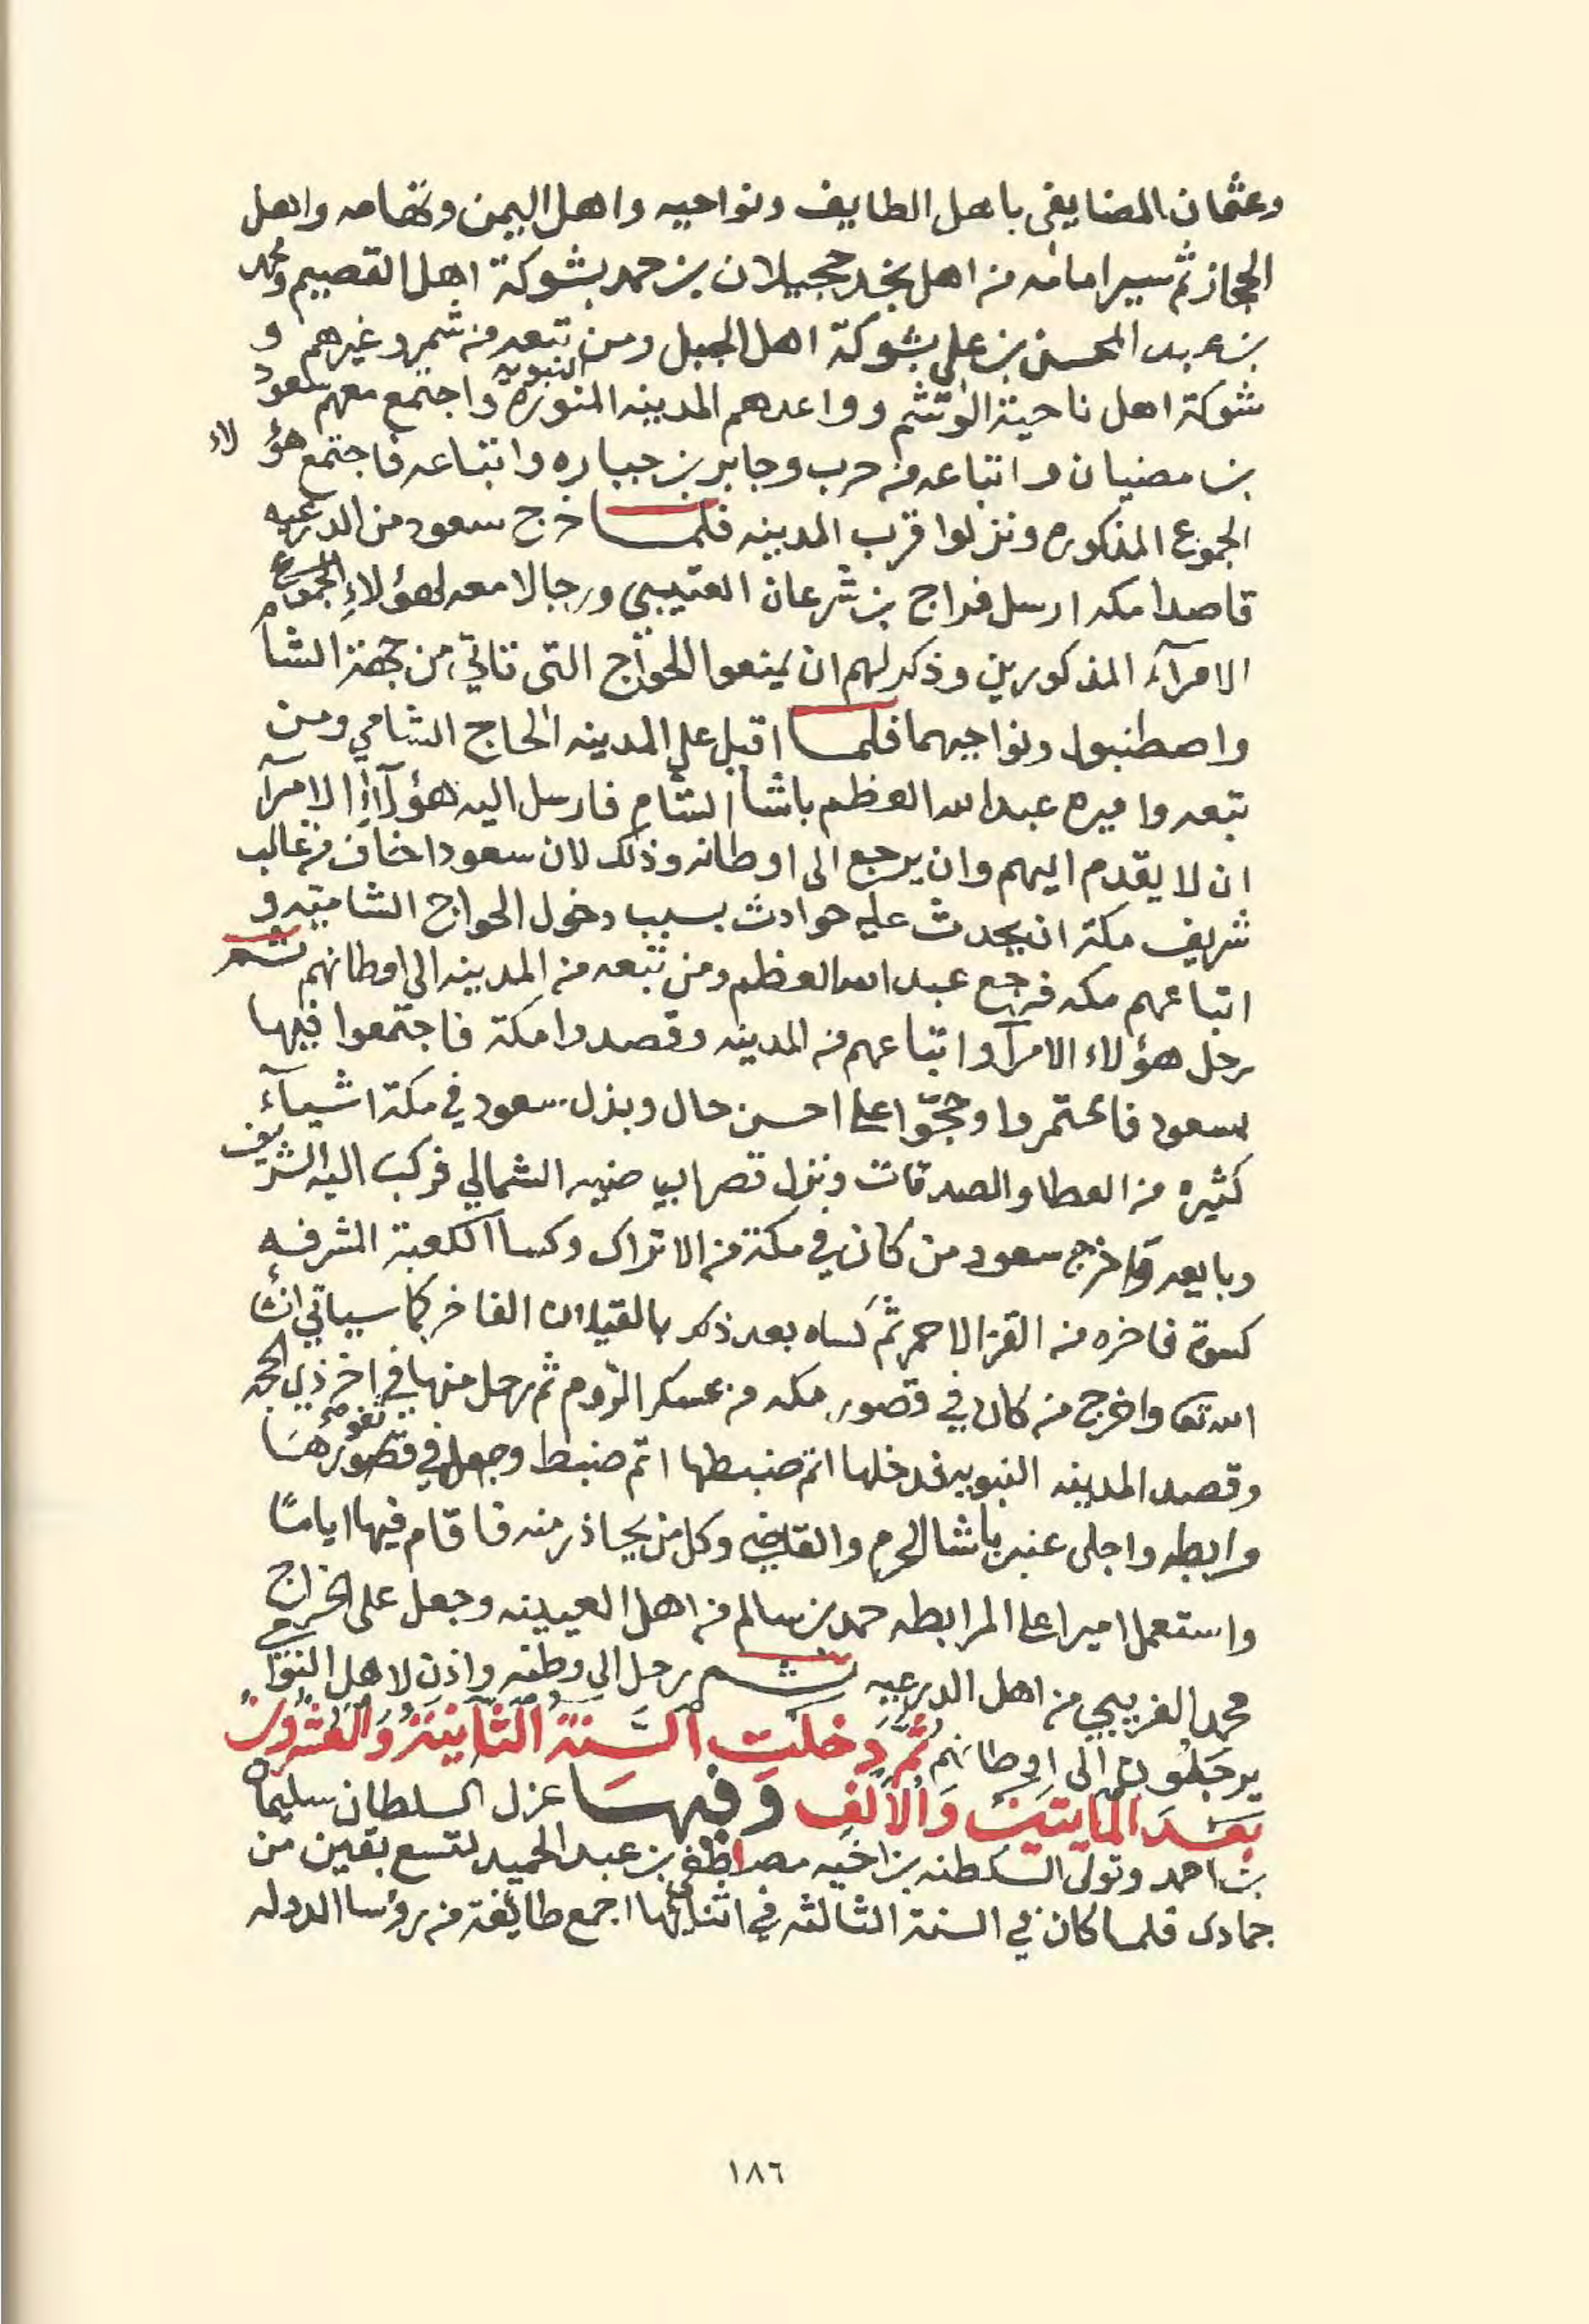 وعثمان المضايفي باهل الطايف ونواحيه واهل اليمن وتهامه واهل
الحجاز ثم سير امامه من اهل نجد حجيلان بن حمد بشوكة اهل القصيم ومحمد
بن عبد المحسن بن علي بشوكة اهل الجبل ومن تبعه من شمر وغيرهم و
شوكة اهل ناحية الوشم وواعدهم المدينه المنورة النبويه واجتمع معهم مسعود
بن مضيان واتباعه من حرب وجابر بن جباره واتباعه فاجتمع هؤلاء
الجموع المذكوره ونزلوا قرب المدينه فلما خرج سعود من الدرعيه
قاصدا مكه ارسل فراج بن شرعان العتيبي ورجالا معه لهؤلاء الجموع
الامرآء المذكورين وذكر لهم ان يمنعوا الحواج التي تاتي من جهة الشام
واصطنبول ونواحيهما فلما اقبل علي المدينه الحاج الشامي ومن
تبعه واميره عبدالله العظم باشا الشام فارسل اليه هؤلآء الامرآ
ان لا يقدم اليهم وان يرجع الى اوطانه وذلك لان سعودا خاف من غالب
شريف مكة ان يحدث عليه حوادث بسبب دخول الحواج الشاميه و
اتباعهم مكه فرجع عبدالله العظم ومن تبعه من المدينه الى اوطانهم ثم
رحل هؤلاء الامرآ واتباعهم من المدينه وقصدوا مكة فاجتمعوا فيها
بسعود فاعتمروا وحجّوا على احسن حال وبذل سعود في مكة اشيآء
كثيره من العطا والصدقات ونزل قصرا بياضيه الشمالي فركب اليه الشريف
وبايعه واخرج سعود من كان في مكة من الاتراك وكسا الكعبة المشرفه
كسوة فاخره من القز الاحمر ثم كساه بعد ذكر بالقيلان الفاخر كما سياتي انشا
الله تعا واخرج من كان في قصور مكه من عسكر الروم ثم رحل منها في اخر ذي الحجه
وقصد المدينه النبويه فدخلها اتم ضبطها اتم ضبط وجعل في قصورها ثغورها
مرابطه واجلى عنبر باشا الحرم والقاضي وكل من يحاذر منه فاقام فيها اياما
واستعمل اميرا على المرابطه حمد بن سالم من اهل العيينه وجعل على الخراج
محمد الغريبي من اهل الدرعيه ثم رحل الى وطنه واذن لاهل النواحي
يرجعون الى اوطانهم ثُمَّ دَخَلَتِ السَّنَةُ الثَّانِيَةُ وَالعُشْرُونَ
بَعْدَ المَايتَيْنِ وَالأَلْفِ وَفيهَا عزل السلطان سليم
بن احمد وتولى السلطنه بن اخيه مصطفى بن عبد الحميد لتسع بقين من
جمادى فلما كان في السنة الثالثه في اثنائها اجمع طائفة من رؤسا الدوله
١٨٦